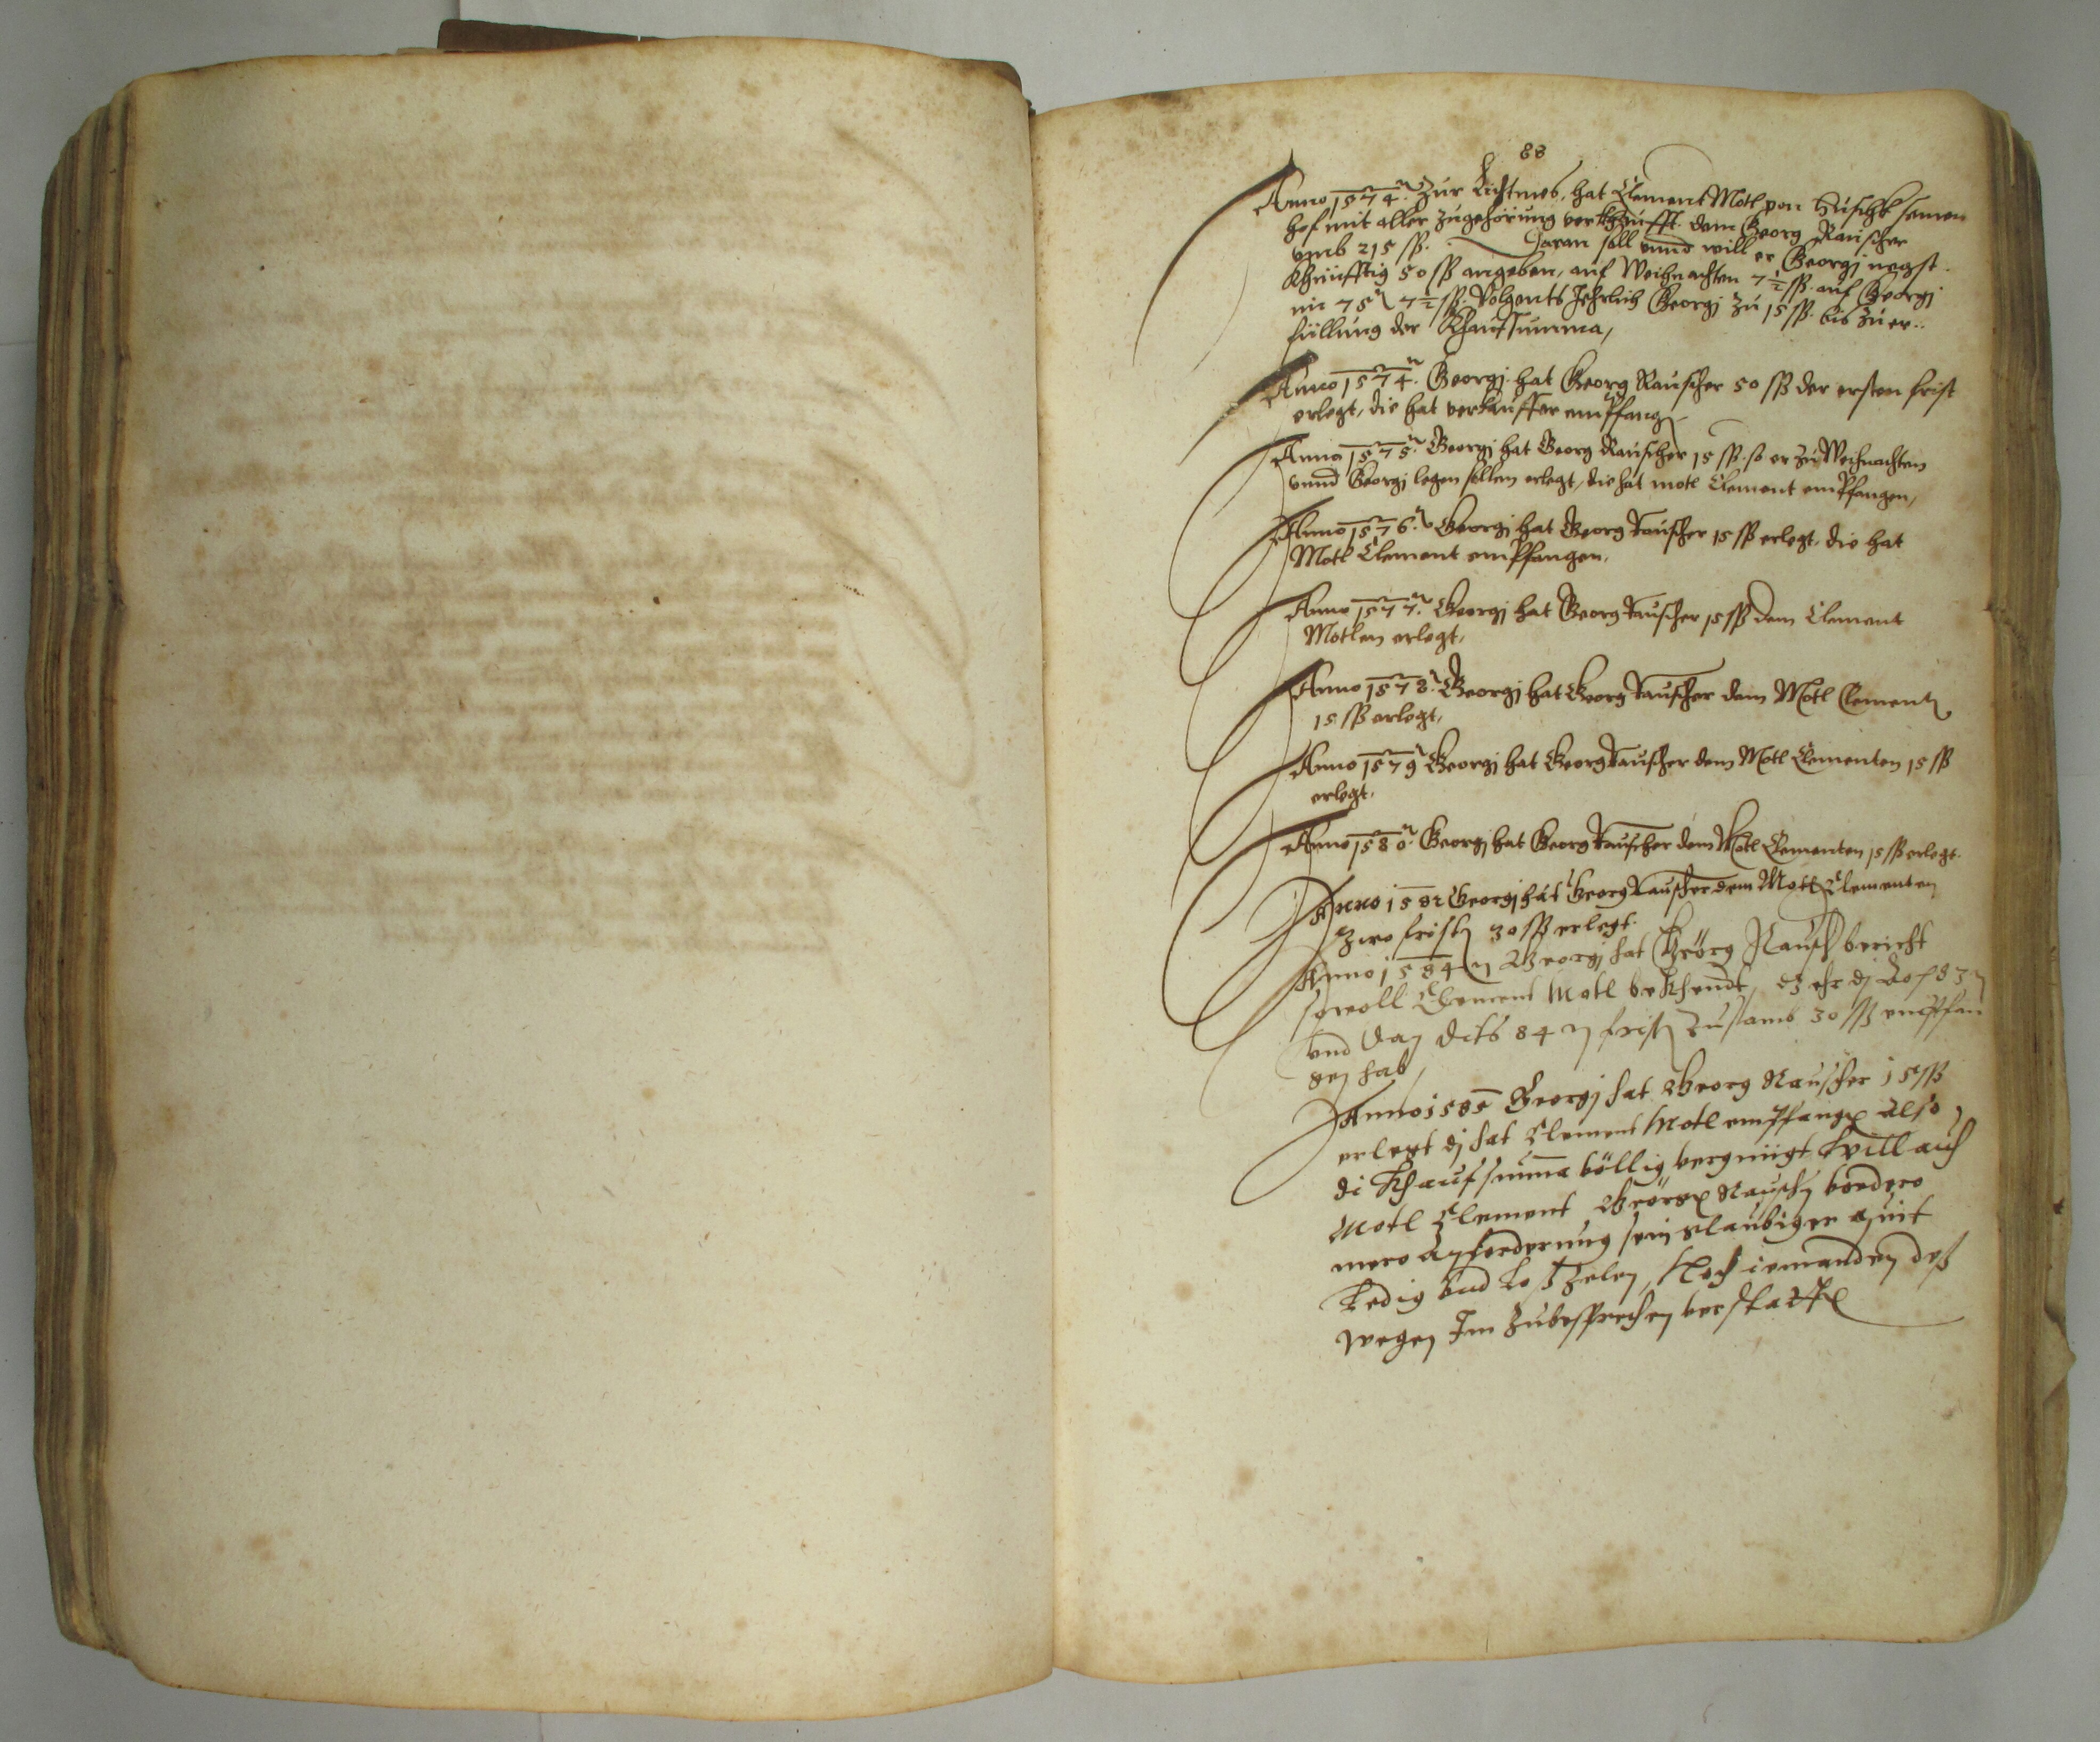 88
Anno 1574. Zur Lichtmes, hat Clement Motl von Huschk seinen
hof mit aller zugehörung verkhaufft. dem Georg Rauscher
vmb 215 ſß. Daran soll vnnd will er Georgj negst
khunfftig 50 ſß angeben, auf Weihnachten 7½ ſß. auf Georgj
im 75 7½ ſß. Volgents Jehrlich Georgj zu 15 ſß. bis zu er..
füllung der Khaufsumma,
Anno 1574. Georgj. hat Georg Rauscher 50 ſß der ersten frist
erlegt, die hat verkauffer empfang
Anno 1575. Georgj hat Georg Rauscher 15 ſß. so er zu Weihnachten
vnnd Georgj legen sollen erlegt, die hat motl Clement empfangen,
Anno 1576. Georgj hat Georg Rauscher 15 ſß erlegt, die hat
Motl Clement empfangen,
Anno 1577. Georgj hat Georg Rauscher 15 ſß dem Clement
Motlen erlegt,
Anno 1578. Georgj hat Georg Rauscher dem Motl Clement
15 ſß erlegt,
Anno 1579 Georgj hat Georg Rauscher dem Motl Clementen 15 ſß
erlegt,
Anno 1580. Georgj hat Georg Rauscher dem Motl Clementen 15 ſß erlegt.
Anno 1582 Georgj hat Georg Rauscher dem Motl Clementen
Zwo fristn 30 ſß erlegt.
Anno 1584 Georgj hat Geörg Rausch bericht
sowoll Clement Motl bekhendt, ehr dj 83
vnd dan dits 84 frist Zusamb 30 ſß empfan
gen hab,
Anno 1585 Georgj hat Georg Rauscher 15 ſß
erlegt dj hat Clement Motl empfangn also
di Khaufsumma völlig vergnügt will auch
Motl Clement Geörgn Rausch
mero anforderung sein glaubiger quit
Ledig vnd Loß Zelen, Noch iemanden deß
wegen Im Zubesprechen verstatten